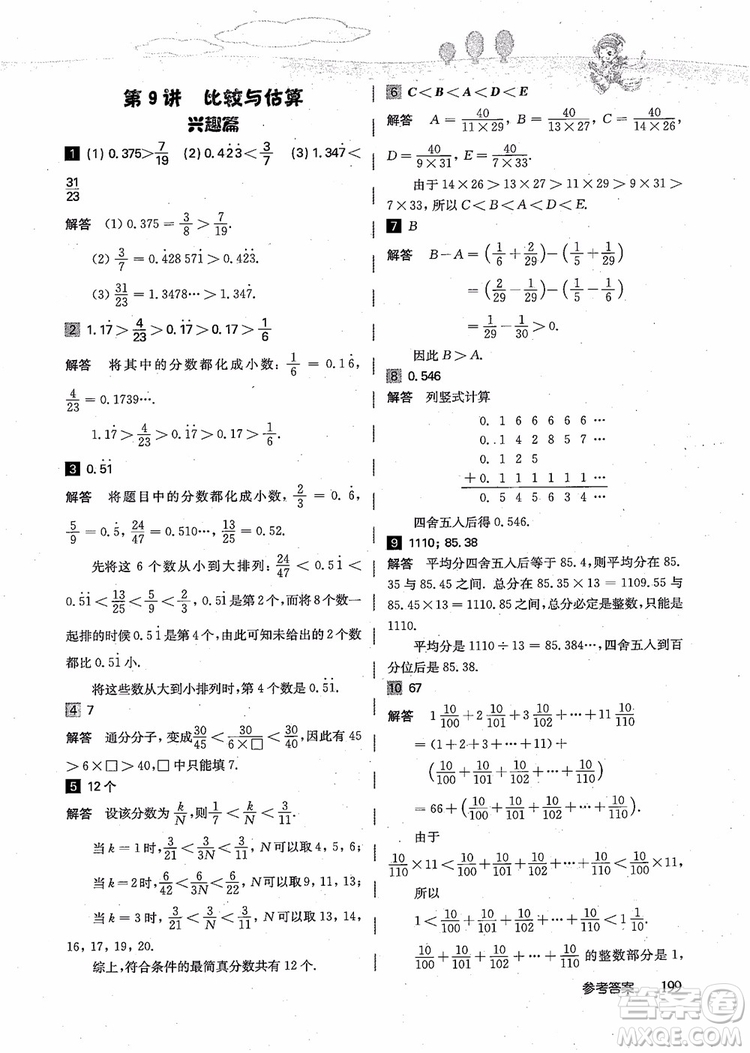 第9讲 比较与估算
兴趣篇
1 (1) 0.375>7/19 (2) 0.4̇23̇<3/7 (3) 1.347̇<
31/23
解答 (1) 0.375=3/8>7/19.
(2) 3/7=0.4̇28 571̇>0.4̇23̇.
(3) 31/23=1.3478…>1.347̇.
2 1.1̇7̇>4/23>0.1̇7̇>0.17>1/6
解答 将其中的分数都化成小数：1/6=0.16̇,
4/23=0.1739….
1.1̇7̇>4/23>0.1̇7̇>0.17>1/6.
3 0.5̇1̇
解答 将题目中的分数都化成小数，2/3=0.6̇,
5/9=0.5̇, 24/47=0.510…, 13/25=0.52.
先将这6个数从小到大排列：24/47<0.51̇
<0.5̇1̇<13/25<5/9<2/3. 0.51̇是第2个，而从小到大一
起排的时候0.51̇是第4个，由此可知未给出的2个数
都比0.51̇小.
将这些数从大到小排列时，第4个数是0.5̇1̇.
4 7
解答 通分分子，变成30/45<30/(6×□)<30/36，所以有45
>6×□>36，□中只能填7.
5 12个
解答 设该分数为k/N，则1/7<k/N<3/11.
当k=1时，3/21<3/3N<3/11，N可以取4，5，6；
当k=2时，6/42<6/3N<6/22，N可以取9，11，13；
当k=3时，3/21<3/N<3/11，N可以取13，14，
16，17，19，20.
综上，符合条件的最简真分数共有12个.
6 C<B<A<D<E
解答 A=40/(11×29), B=40/(13×27), C=40/(14×26),
D=40/(9×31), E=40/(7×33).
由于14×26>13×27>11×29>9×31>
7×33，所以C<B<A<D<E.
7 B
解答 B-A=(1/6+2/29)-(1/5+1/29)
=(2/29-1/29)-(1/5-1/6)
=1/29-1/30>0.
因此B>A.
8 0.546
解答 列竖式计算
0. 1 6 6 6 6 6 …
0. 1 4 2 8 5 7 …
0. 1 2 5
+0. 1 1 1 1 1 1 …
0. 5 4 5 6 3 4 …
四舍五入后得0.546.
9 1110；85.38
解答 平均分四舍五入后等于85.4，则平均分在85.
35与85.45之间. 总分在85.35×13=1109.55与
85.45×13=1110.85之间，总分必定是整数，只能是
1110.
平均分是1110÷13=85.384…，四舍五入到百
分位后是85.38.
10 67
解答 1 10/100+2 10/101+3 10/102+…+11 10/110
=(1+2+3+…+11)+
(10/100+10/101+10/102+…+10/110)
=66+(10/100+10/101+10/102+…+10/110)
由于
10/110×11<10/100+10/101+10/102+…+10/110<10/100×11.
所以
1<10/100+10/101+10/102+…+10/110<1 1/10.
10/100+10/101+10/102+…+10/110的整数部分是1，
参考答案 199
答案圈